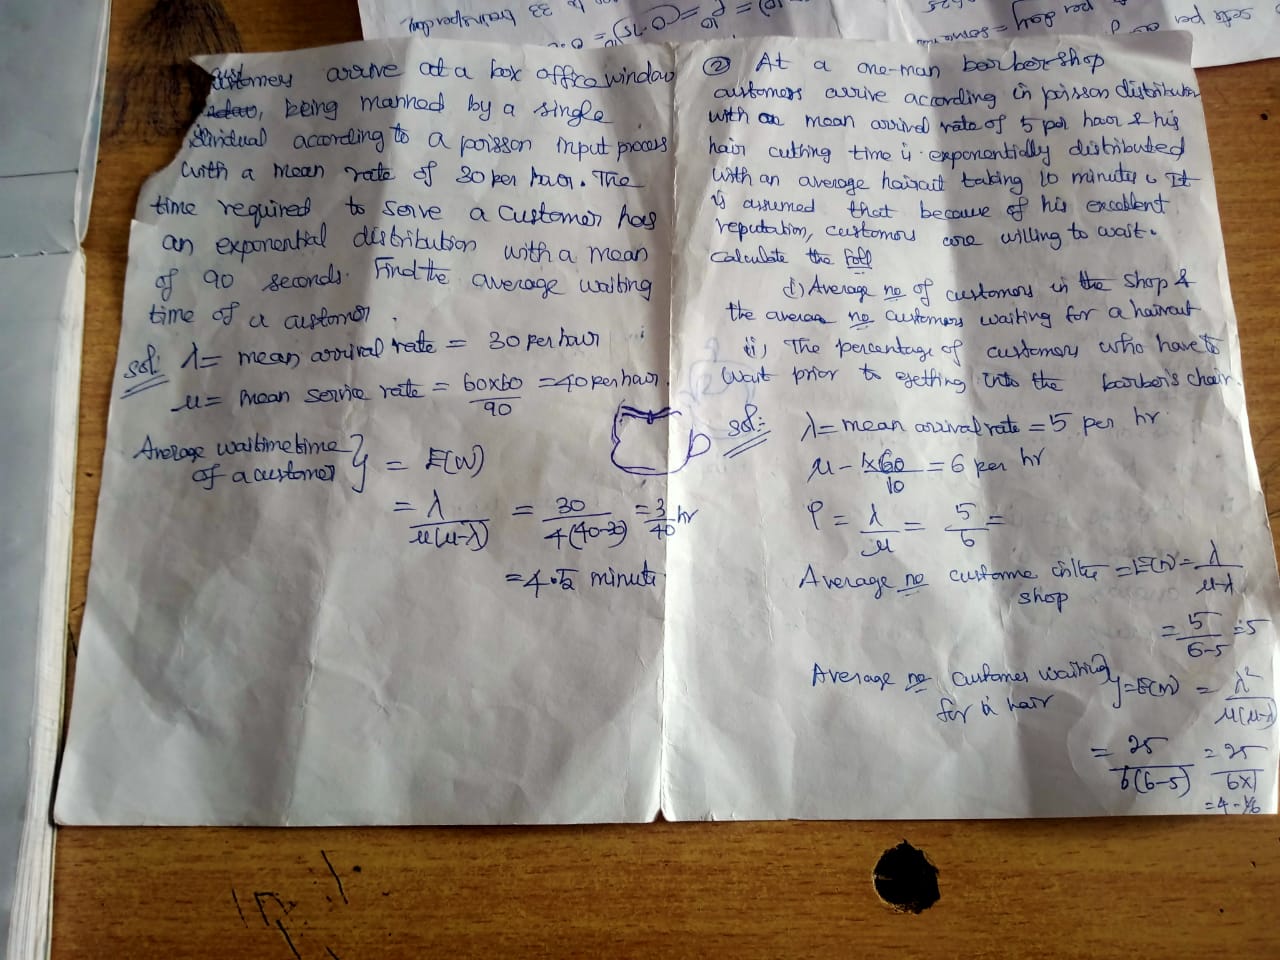 ustomers arrive at a box office window
being manned by a single
individual according to a poisson input process
with a mean rate of 30 per hour. The
time required to serve a customer has
an exponential distribution with a mean
of 90 seconds. Find the average waiting
time of a customer.
sol: λ = mean arrival rate = 30 per hour
μ = mean service rate = 60x60/90 = 40 per hour.
Average waitime time
of a customer } = E(W)
= λ/μ(μ-λ) = 30/4(40-30) = 3/40 hr
= 4.5 minute
② At a one-man barber shop
customers arrive according in poisson distribution
with an mean arrival rate of 5 per hour & his
hair cutting time is exponentially distributed
with an average haircut taking 10 minutes. It
is assumed that because of his excellent
reputation, customers are willing to wait.
Calculate the foll
(i) Average no of customers in the shop &
the average no customers waiting for a haircut
ii) The percentage of customers who have to
wait prior to getting into the barber's chair.
sol:- λ = mean arrival rate = 5 per hr
μ - 1x60/10 = 6 per hr
ρ = λ/μ = 5/6 =
Average no custome in the = E(N) = λ/μ-λ
shop
= 5/6-5 = 5
Average no customer waiting
for a hair } = E(N) = λ²/μ(μ-λ)
= 25/6(6-5) = 25/6x1
= 4-1/6